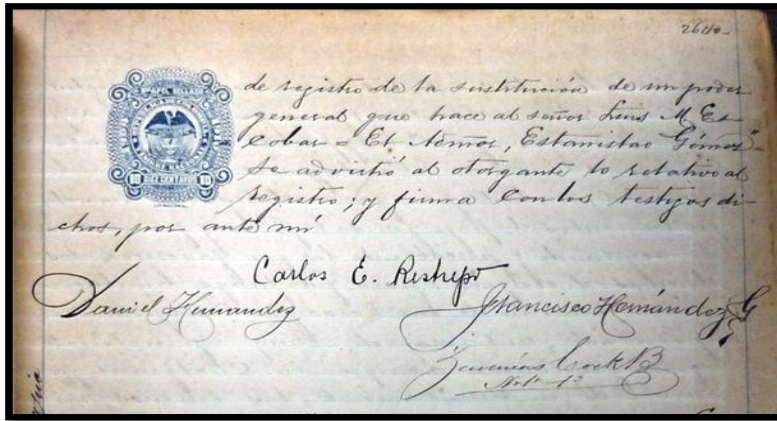 2640-
de registro de la sustitución de un poder
general que hace al señor Luis M. Es-
cobar = El Admor, Estanislao Gómez"-
Se advirtió al otorgante lo relativo al
registro; y firma con los testigos di-
chos, por ante mí
Carlos E. Restrepo
Daniel Hernandez
Francisco Hernández G
Cock B
Notº 1º
DIEZ CENTAVOS
10 10